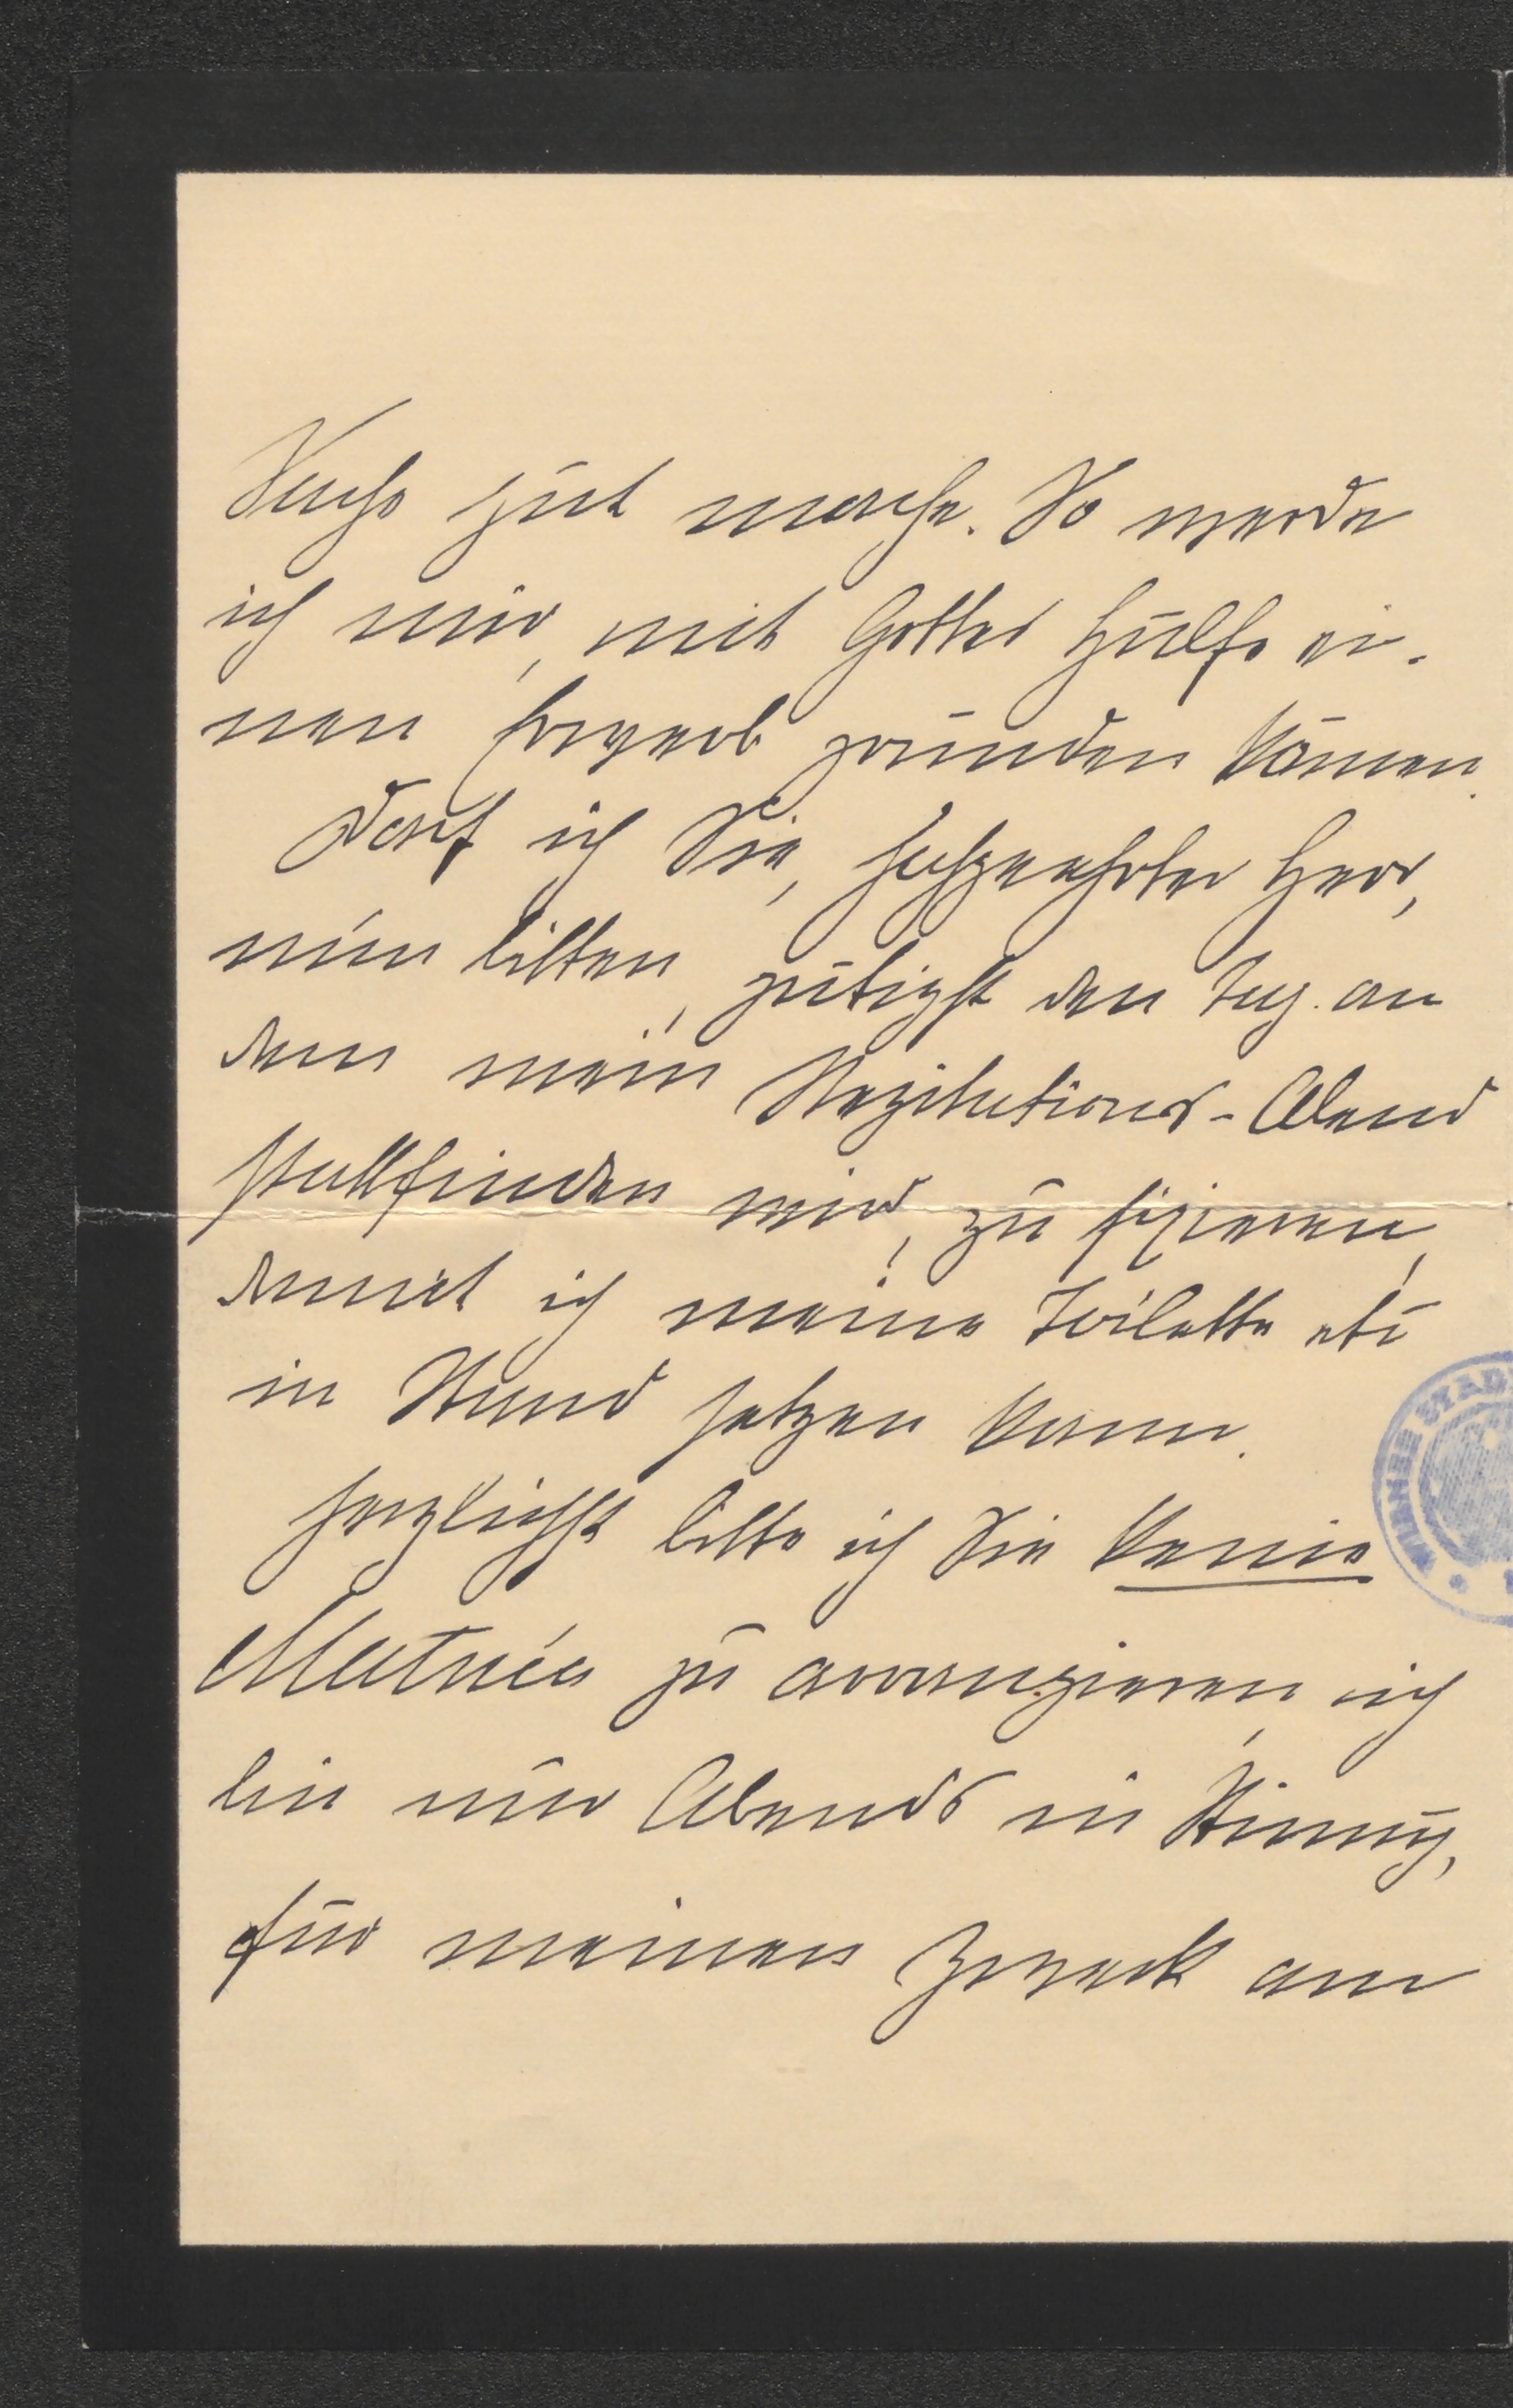 Sache gut mache. So werde
ich mir, mit Gottes Hülfe ei-
nen Erwerb gründen können.
Darf ich Sie, hochgeehrter Herr,
nun bitten, gütigst den Tag an
dem mein Rezitations-Abend
stattfinden wird, zu fixieren,
damit ich meine Toilette etc
in Stand setzen kann.
Herzlichst bitte ich Sie keine
Matinée zu arrangieren, ich
bin nur Abends in Stimmg,
für meinen Zweck am
WIENER STAD